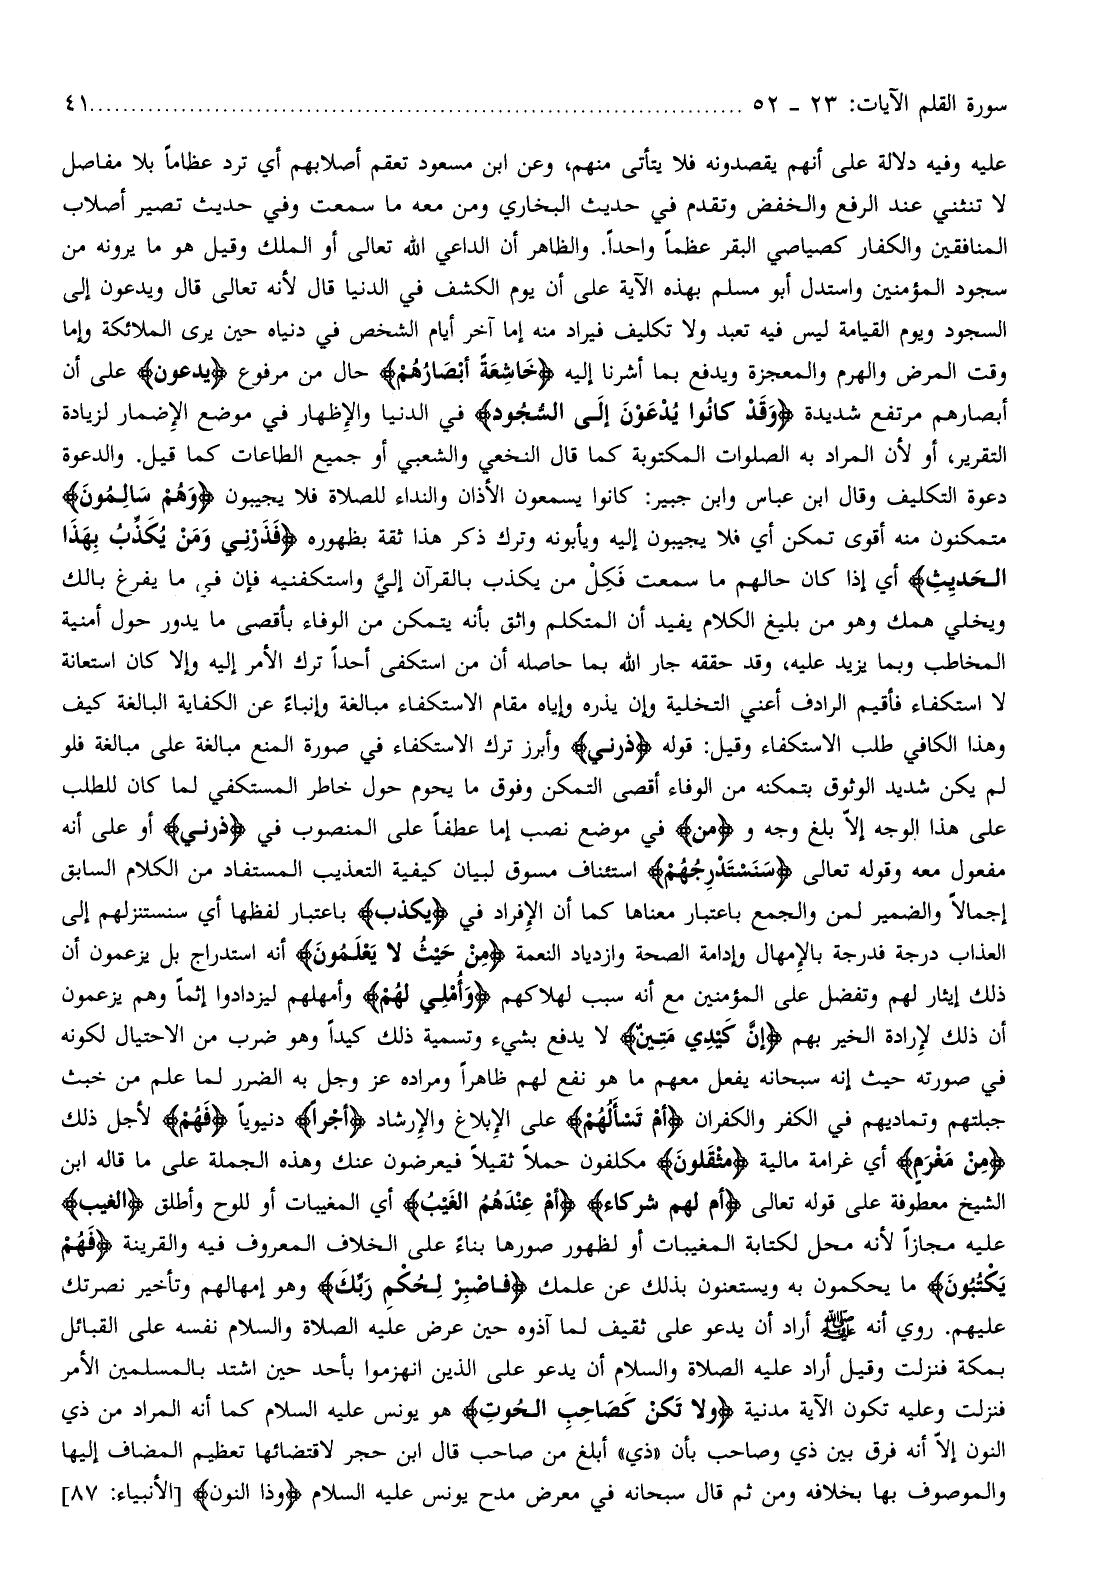 سورة القلم الآيات: ٢٣ ـ ٥٢ ........................................................................... ٤١
عليه وفيه دلالة على أنهم يقصدونه فلا يتأتى منهم، وعن ابن مسعود تعقم أصلابهم أي ترد عظاماً بلا مفاصل
لا تنثني عند الرفع والخفض وتقدم في حديث البخاري ومن معه ما سمعت وفي حديث تصير أصلاب
المنافقين والكفار كصياصي البقر عظماً واحداً. والظاهر أن الداعي الله تعالى أو الملك وقيل هو ما يرونه من
سجود المؤمنين واستدل أبو مسلم بهذه الآية على أن يوم الكشف في الدنيا قال لأنه تعالى قال ويدعون إلى
السجود ويوم القيامة ليس فيه تعبد ولا تكليف فيراد منه إما آخر أيام الشخص في دنياه حين يرى الملائكة وإما
وقت المرض والهرم والمعجزة ويدفع بما أشرنا إليه ﴿خَاشِعَةً أبْصَارُهُمْ﴾ حال من مرفوع ﴿يدعون﴾ على أن
أبصارهم مرتفع شديدة ﴿وَقَدْ كانُوا يُدْعَوْنَ إلَى السُّجُود﴾ في الدنيا والإِظهار في موضع الإِضمار لزيادة
التقرير، أو لأن المراد به الصلوات المكتوبة كما قال النخعي والشعبي أو جميع الطاعات كما قيل. والدعوة
دعوة التكليف وقال ابن عباس وابن جبير: كانوا يسمعون الأذان والنداء للصلاة فلا يجيبون ﴿وَهُمْ سَالِمُونَ﴾
متمكنون منه أقوى تمكن أي فلا يجيبون إليه ويأبونه وترك ذكر هذا ثقة بظهوره ﴿فَذَرْنِي وَمَنْ يُكَذِّبُ بِهَذَا
الحَدِيثِ﴾ أي إذا كان حالهم ما سمعت فَكِلْ من يكذب بالقرآن إليَّ واستكفنيه فإن في ما يفرغ بالك
ويخلي همك وهو من بليغ الكلام يفيد أن المتكلم واثق بأنه يتمكن من الوفاء بأقصى ما يدور حول أمنية
المخاطب وبما يزيد عليه، وقد حققه جار الله بما حاصله أن من استكفى أحداً ترك الأمر إليه وإلا كان استعانة
لا استكفاء فأقيم الرادف أعني التخلية وإن يذره وإياه مقام الاستكفاء مبالغة وإنباءً عن الكفاية البالغة كيف
وهذا الكافي طلب الاستكفاء وقيل: قوله ﴿ذرني﴾ وأبرز ترك الاستكفاء في صورة المنع مبالغة على مبالغة فلو
لم يكن شديد الوثوق بتمكنه من الوفاء أقصى التمكن وفوق ما يحوم حول خاطر المستكفي لما كان للطلب
على هذا الوجه إلاّ بلغ وجه و ﴿من﴾ في موضع نصب إما عطفاً على المنصوب في ﴿ذرني﴾ أو على أنه
مفعول معه وقوله تعالى ﴿سَنَسْتَدْرِجُهُمْ﴾ استئناف مسوق لبيان كيفية التعذيب المستفاد من الكلام السابق
إجمالاً والضمير لمن والجمع باعتبار معناها كما أن الإِفراد في ﴿يكذب﴾ باعتبار لفظها أي سنستنزلهم إلى
العذاب درجة فدرجة بالإِمهال وإدامة الصحة وازدياد النعمة ﴿مِنْ حَيْثُ لا يَعْلَمُونَ﴾ أنه استدراج بل يزعمون أن
ذلك إيثار لهم وتفضل على المؤمنين مع أنه سبب لهلاكهم ﴿وَأُمْلِي لهُمْ﴾ وأمهلهم ليزدادوا إثماً وهم يزعمون
أن ذلك لإِرادة الخير بهم ﴿إنَّ كَيْدِي مَتِينٌ﴾ لا يدفع بشيء وتسمية ذلك كيداً وهو ضرب من الاحتيال لكونه
في صورته حيث إنه سبحانه يفعل معهم ما هو نفع لهم ظاهراً ومراده عز وجل به الضرر لما علم من خبث
جبلتهم وتماديهم في الكفر والكفران ﴿أمْ تَسْأَلُهُمْ﴾ على الإِبلاغ والإِرشاد ﴿أجْراً﴾ دنيوياً ﴿فَهُمْ﴾ لأجل ذلك
﴿مِنْ مَغْرَمٍ﴾ أي غرامة مالية ﴿مثْقَلونَ﴾ مكلفون حملاً ثقيلاً فيعرضون عنك وهذه الجملة على ما قاله ابن
الشيخ معطوفة على قوله تعالى ﴿أم لهم شركاء﴾ ﴿أمْ عِنْدَهُمُ الغَيْبُ﴾ أي المغيبات أو للوح وأطلق ﴿الغيب﴾
عليه مجازاً لأنه محل لكتابة المغيبات أو لظهور صورها بناءً على الخلاف المعروف فيه والقرينة ﴿فَهُمْ
يَكْتُبُونَ﴾ ما يحكمون به ويستعنون بذلك عن علمك ﴿فاصْبِرْ لِحُكْمِ رَبِّكَ﴾ وهو إمهالهم وتأخير نصرتك
عليهم. روي أنه ﷺ أراد أن يدعو على ثقيف لما آذوه حين عرض عليه الصلاة والسلام نفسه على القبائل
بمكة فنزلت وقيل أراد عليه الصلاة والسلام أن يدعو على الذين انهزموا بأحد حين اشتد بالمسلمين الأمر
فنزلت وعليه تكون الآية مدنية ﴿ولا تَكنْ كَصَاحِبِ الحُوتِ﴾ هو يونس عليه السلام كما أنه المراد من ذي
النون إلاّ أنه فرق بين ذي وصاحب بأن «ذي» أبلغ من صاحب قال ابن حجر لاقتضائها تعظيم المضاف إليها
والموصوف بها بخلافه ومن ثم قال سبحانه في معرض مدح يونس عليه السلام ﴿وذا النون﴾ [الأنبياء: ٨٧]